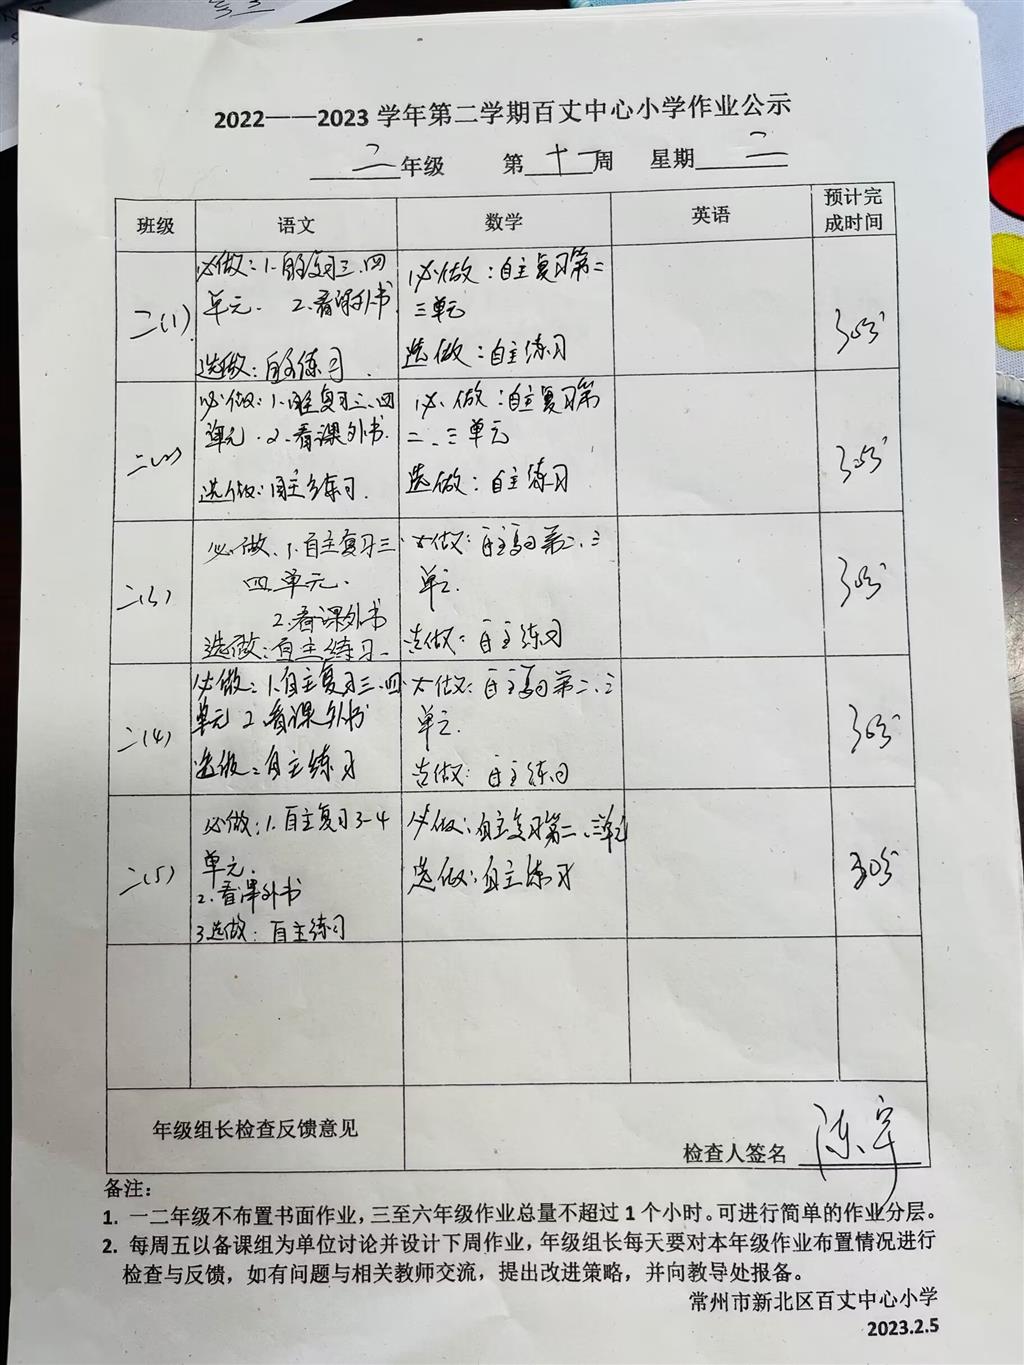 2022——2023 学年第二学期百丈中心小学作业公示
二年级 第十一周 星期二
班级 语文 数学 英语 预计完成时间
二(1)
必做：1.自主复习三、四
单元. 2.看课外书.
选做：自主练习.
必做：自主复习第二
三单元
选做：自主练习
30分
二(2)
必做：1.自主复习三、四
单元.2.看课外书.
选做：自主练习.
必做：自主复习第
二、三单元
选做：自主练习
30分
二(3)
必做：1.自主复习三
四单元.
2.看课外书
选做：自主练习.
必做：自主复习第二、三
单元.
选做：自主练习
30分
二(4)
必做：1.自主复习三、四
单元 2.看课外书
选做：自主练习
必做：自主复习第二、三
单元.
选做：自主练习
30分
二(5)
必做：1.自主复习3-4
单元.
2.看课外书
3选做：自主练习
必做：自主复习第二、三单元
选做：自主练习
30分
年级组长检查反馈意见
检查人签名 陈宇
备注：
1. 一二年级不布置书面作业，三至六年级作业总量不超过 1 个小时。可进行简单的作业分层。
2. 每周五以备课组为单位讨论并设计下周作业，年级组长每天要对本年级作业布置情况进行
检查与反馈，如有问题与相关教师交流，提出改进策略，并向教导处报备。
常州市新北区百丈中心小学
2023.2.5